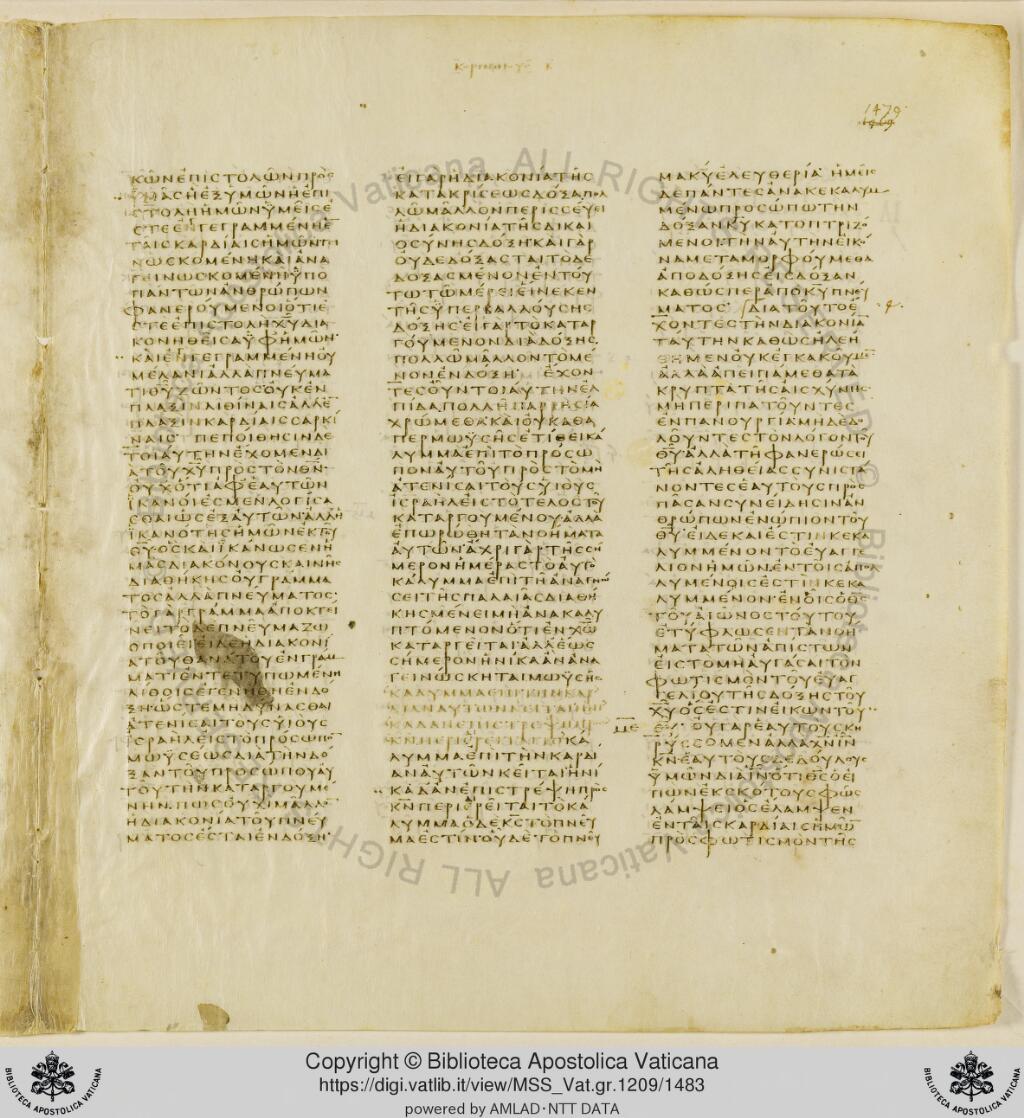 ΚΩΝΕΠΙϹΤΟΛΩΝΠΡΟϹ
ΥΜΑϹΗΕΞΥΜΩΝΗΕΠΙ
ϹΤΟΛΗΗΜΩΝΥΜΕΙϹΕ
ϹΤΕΕΝΓΕΓΡΑΜΜΕΝΗΕ̅
ΤΑΙϹΚΑΡΔΙΑΙϹΗΜΩΝΓΕΙ
ΝΩϹΚΟΜΕΝΗΚΑΙΑΝΑ
ΓΕΙΝΩϹΚΟΜΕΝΗΥΠΟ
ΠΑΝΤΩΝΑΝΘΡΩΠΩΝ
ΦΑΝΕΡΟΥΜΕΝΟΙΟΤΙΕ
ϹΤΕΕΠΙϹΤΟΛΗΧ̅Υ̅ΔΙΑ
ΚΟΝΗΘΕΙϹΑΥΦΗΜΩΝ
ΚΑΙΕΝΓΕΓΡΑΜΜΕΝΗΟΥ
ΜΕΛΑΝΙΑΛΛΑΠΝΕΥΜΑ
ΤΙΘ̅Υ̅ΖΩΝΤΟϹΟΥΚΕΝ
ΠΛΑΞΙΝΛΙΘΙΝΑΙϹΑΛΛΕ̅
ΠΛΑΞΙΝΚΑΡΔΙΑΙϹϹΑΡΚΙ
ΝΑΙϹ ΠΕΠΟΙΘΗϹΙΝΔΕ
ΤΟΙΑΥΤΗΝΕΧΟΜΕΝΔΙ
ΑΤΟΥΧ̅Υ̅ΠΡΟϹΤΟΝΘ̅Ν̅
ΟΥΧΟΤΙΑΦΕΑΥΤΩΝ
ΪΚΑΝΟΙΕϹΜΕΝΛΟΓΙϹΑ
ϹΘΑΙΩϹΕΞΑΥΤΩΝΑΛΛΗ
ΪΚΑΝΟΤΗϹΗΜΩΝΕΚΤΟΥ
Θ̅Υ̅ΟϹΚΑΙΪΚΑΝΩϹΕΝΗ
ΜΑϹΔΙΑΚΟΝΟΥϹΚΑΙΝΗϹ
ΔΙΑΘΗΚΗϹΟΥΓΡΑΜΜΑ
ΤΟϹΑΛΛΑΠΝΕΥΜΑΤΟϹ
ΤΟΓΑΡΓΡΑΜΜΑΑΠΟΚΤΕΙ
ΝΕΙΤΟΔΕΠΝΕΥΜΑΖΩ
ΟΠΟΙΕΙΕΙΔΕΗΔΙΑΚΟΝΙ
ΑΤΟΥΘΑΝΑΤΟΥΕΝΓΡΑΜ
ΜΑΤΙΕΝΤΕΤΥΠΩΜΕΝΗ
ΛΙΘΟΙϹΕΓΕΝΗΘΗΕΝΔΟ
ΞΗΩϹΤΕΜΗΔΥΝΑϹΘΑΙ
ΑΤΕΝΙϹΑΙΤΟΥϹΥΙΟΥϹ
ΙϹΡΑΗΛΕΙϹΤΟΠΡΟϹΩΠΟ̅
ΜΩΥϹΕΩϹΔΙΑΤΗΝΔΟ
ΞΑΝΤΟΥΠΡΟϹΩΠΟΥΑΥ
ΤΟΥΤΗΝΚΑΤΑΡΓΟΥΜΕ
ΝΗΝΠΩϹΟΥΧΙΜΑΛΛΟ̅
ΗΔΙΑΚΟΝΙΑΤΟΥΠΝΕΥ
ΜΑΤΟϹΕϹΤΑΙΕΝΔΟΞΗ
ΕΙΓΑΡΗΔΙΑΚΟΝΙΑΤΗϹ
ΚΑΤΑΚΡΙϹΕΩϹΔΟΞΑΠΟΛ
ΛΩΜΑΛΛΟΝΠΕΡΙϹϹΕΥΕΙ
ΗΔΙΑΚΟΝΙΑΤΗϹΔΙΚΑΙ
ΟϹΥΝΗϹΔΟΞΗΚΑΙΓΑΡ
ΟΥΔΕΔΟΞΑϹΤΑΙΤΟΔΕ
ΔΟΞΑϹΜΕΝΟΝΕΝΤΟΥ
ΤΩΤΩΜΕΡΕΙΕΙΝΕΚΕΝ
ΤΗϹΥΠΕΡΒΑΛΛΟΥϹΗϹ
ΔΟΞΗϹΕΙΓΑΡΤΟΚΑΤΑΡ
ΓΟΥΜΕΝΟΝΔΙΑΔΟΞΗϹ
ΠΟΛΛΩΜΑΛΛΟΝΤΟΜΕ
ΝΟΝΕΝΔΟΞΗ ΕΧΟΝ
ΤΕϹΟΥΝΤΟΙΑΥΤΗΝΕΛ
ΠΙΔΑΠΟΛΛΗΠΑΡΡΗϹΙΑ
ΧΡΩΜΕΘΑΚΑΙΟΥΚΑΘΑ
ΠΕΡΜΩΥϹΗϹΕΤΙΘΕΙΚΑ
ΛΥΜΜΑΕΠΙΤΟΠΡΟϹΩ
ΠΟΝΑΥΤΟΥΠΡΟϹΤΟΜΗ
ΑΤΕΝΙϹΑΙΤΟΥϹΥΙΟΥϹ
ΙϹΡΑΗΛΕΙϹΤΟΤΕΛΟϹΤΟΥ
ΚΑΤΑΡΓΟΥΜΕΝΟΥΑΛΛΑ
ΕΠΩΡΩΘΗΤΑΝΟΗΜΑΤΑ
ΑΥΤΩΝΑΧΡΙΓΑΡΤΗϹϹΗ
ΜΕΡΟΝΗΜΕΡΑϹΤΟΑΥΤΟ
ΚΑΛΥΜΜΑΕΠΙΤΗΑΝΑΓΝΩ
ϹΕΙΤΗϹΠΑΛΑΙΑϹΔΙΑΘΗ
ΚΗϹΜΕΝΕΙΜΗΑΝΑΚΑΛΥ
ΠΤΟΜΕΝΟΝΟΤΙΕΝΧ̅Ω̅
ΚΑΤΑΡΓΕΙΤΑΙΑΛΛΕΩϹ
ϹΗΜΕΡΟΝΗΝΙΚΑΑΝΑΝΑ
ΓΕΙΝΩϹΚΗΤΑΙΜΩΥϹΗϹ
ΚΑΛΥΜΜΑΕΠΙΤΗΝΚΑΡ
ΔΙΑΝΑΥΤΩΝΚΕΙΤΑΙΗΝΙ
ΚΑΔΑΝΕΠΙϹΤΡΕΨΗΠΡΟϹ
Κ̅Ν̅ΠΕΡΙΑΙΡΕΙΤΑΙΤΟΚΑ
ΛΥΜΜΑΕΠΙΤΗΝΚΑΡΔΙ
ΑΝΑΥΤΩΝΚΕΙΤΑΙΗΝΙ
ΚΑΔΑΝΕΠΙϹΤΡΕΨΗΠΡΟϹ
Κ̅Ν̅ΠΕΡΙΕΡΕΙΤΑΙΤΟΚΑ
ΛΥΜΜΑΟΔΕΚ̅Ϲ̅ΤΟΠΝΕΥ
ΜΑΕϹΤΙΝΟΥΔΕΤΟΠΝΕΥ
ΜΑΚ̅Υ̅ΕΛΕΥΘΕΡΙΑ ΗΜΕΙϹ
ΔΕΠΑΝΤΕϹΑΝΑΚΕΚΑΛΥΜ
ΜΕΝΩΠΡΟϹΩΠΩΤΗΝ
ΔΟΞΑΝΚ̅Υ̅ΚΑΤΟΠΤΡΙΖΟ
ΜΕΝΟΙΤΗΝΑΥΤΗΝΕΙΚΟ
ΝΑΜΕΤΑΜΟΡΦΟΥΜΕΘΑ
ΑΠΟΔΟΞΗϹΕΙϹΔΟΞΑΝ
ΚΑΘΩϹΠΕΡΑΠΟΚ̅Υ̅ΠΝΕΥ
ΜΑΤΟϹ ΔΙΑΤΟΥΤΟΕ
ΧΟΝΤΕϹΤΗΝΔΙΑΚΟΝΙΑ̅
ΤΑΥΤΗΝΚΑΘΩϹΗΛΕΗ
ΘΗΜΕΝΟΥΚΕΓΚΑΚΟΥΜΕ̅
ΑΛΛΑΑΠΕΙΠΑΜΕΘΑΤΑ
ΚΡΥΠΤΑΤΗϹΑΙϹΧΥΝΗϹ
ΜΗΠΕΡΙΠΑΤΟΥΝΤΕϹ
ΕΝΠΑΝΟΥΡΓΙΑΜΗΔΕΔΟ
ΛΟΥΝΤΕϹΤΟΝΛΟΓΟΝΤΟΥ
Θ̅Υ̅ΑΛΛΑΤΗΦΑΝΕΡΩϹΕΙ
ΤΗϹΑΛΗΘΕΙΑϹϹΥΝΙϹΤΑ
ΝΟΝΤΕϹΕΑΥΤΟΥϹΠΡΟϹ
ΠΑϹΑΝϹΥΝΕΙΔΗϹΙΝΑΝ
ΘΡΩΠΩΝΕΝΩΠΙΟΝΤΟΥ
Θ̅Υ̅ΕΙΔΕΚΑΙΕϹΤΙΝΚΕΚΑ
ΛΥΜΜΕΝΟΝΤΟΕΥΑΓΓΕ
ΛΙΟΝΗΜΩΝΕΝΤΟΙϹΑΠΟΛ
ΛΥΜΕΝΟΙϹΕϹΤΙΝΚΕΚΑ
ΛΥΜΜΕΝΟΝΕΝΟΙϹΟΘΕΟϹ
ΤΟΥΑΙΩΝΟϹΤΟΥΤΟΥ
ΕΤΥΦΛΩϹΕΝΤΑΝΟΗ
ΜΑΤΑΤΩΝΑΠΙϹΤΩΝ
ΕΙϹΤΟΜΗΑΥΓΑϹΑΙΤΟΝ
ΦΩΤΙϹΜΟΝΤΟΥΕΥΑΓ
ΓΕΛΙΟΥΤΗϹΔΟΞΗϹΤΟΥ
Χ̅Υ̅ΟϹΕϹΤΙΝΕΙΚΩΝΤΟΥ
Θ̅Υ̅ ΟΥΓΑΡΕΑΥΤΟΥϹΚΗ
ΡΥϹϹΟΜΕΝΑΛΛΑΧ̅Ν̅Ι̅Ν̅
Κ̅Ν̅ΕΑΥΤΟΥϹΔΕΔΟΥΛΟΥϹ
ΥΜΩΝΔΙΑΙ̅Ν̅ΟΤΙΟΘ̅Ϲ̅ΟΕΙ
ΠΩΝΕΚϹΚΟΤΟΥϹΦΩϹ
ΛΑΜΨΕΙΟϹΕΛΑΜΨΕΝ
ΕΝΤΑΙϹΚΑΡΔΙΑΙϹΗΜΩ̅
ΠΡΟϹΦΩΤΙϹΜΟΝΤΗϹ
1479
Μ̅Ε̅
Copyright © Biblioteca Apostolica Vaticana
https://digi.vatlib.it/view/MSS_Vat.gr.1209/1483
powered by AMLAD·NTT DATA
BIBLIOTECA APOSTOLICA VATICANA
BIBLIOTECA APOSTOLICA VATICANA